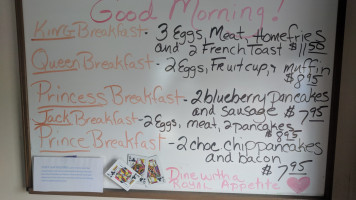 Good Morning!
King Breakfast - 3 Eggs, Meat, Homefries
and 2 French Toast $11.50
Queen Breakfast - 2 Eggs, Fruit cup, & muffin
$8.95
Princess Breakfast - 2 blueberry pancakes
and sausage $7.95
Jack Breakfast - 2 Eggs, meat, 2 pancakes
$8.95
Prince Breakfast - 2 choc chip pancakes
and bacon
$7.95
Dine with a
Royal Appetite